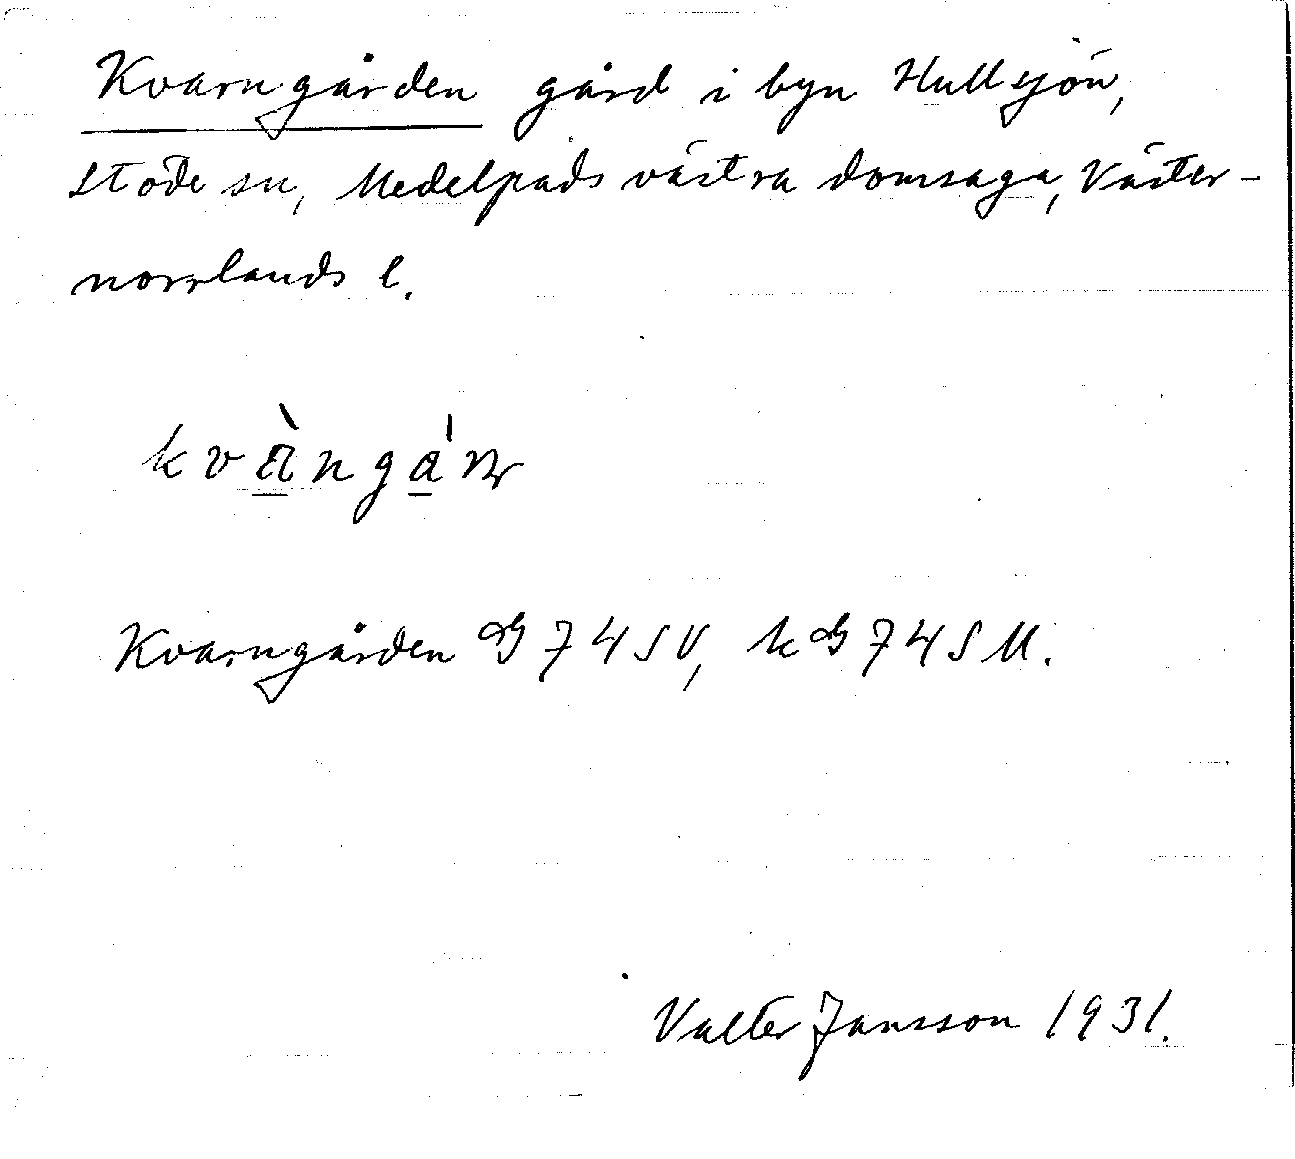 Kvarngården gård i byn Hullsjön,
Stöde sn, Medelpads västra domsaga, Väster-
norrlands l.
Kvarngården GS 74 SV, k GS 74 SM.
Valter Jansson 1931.